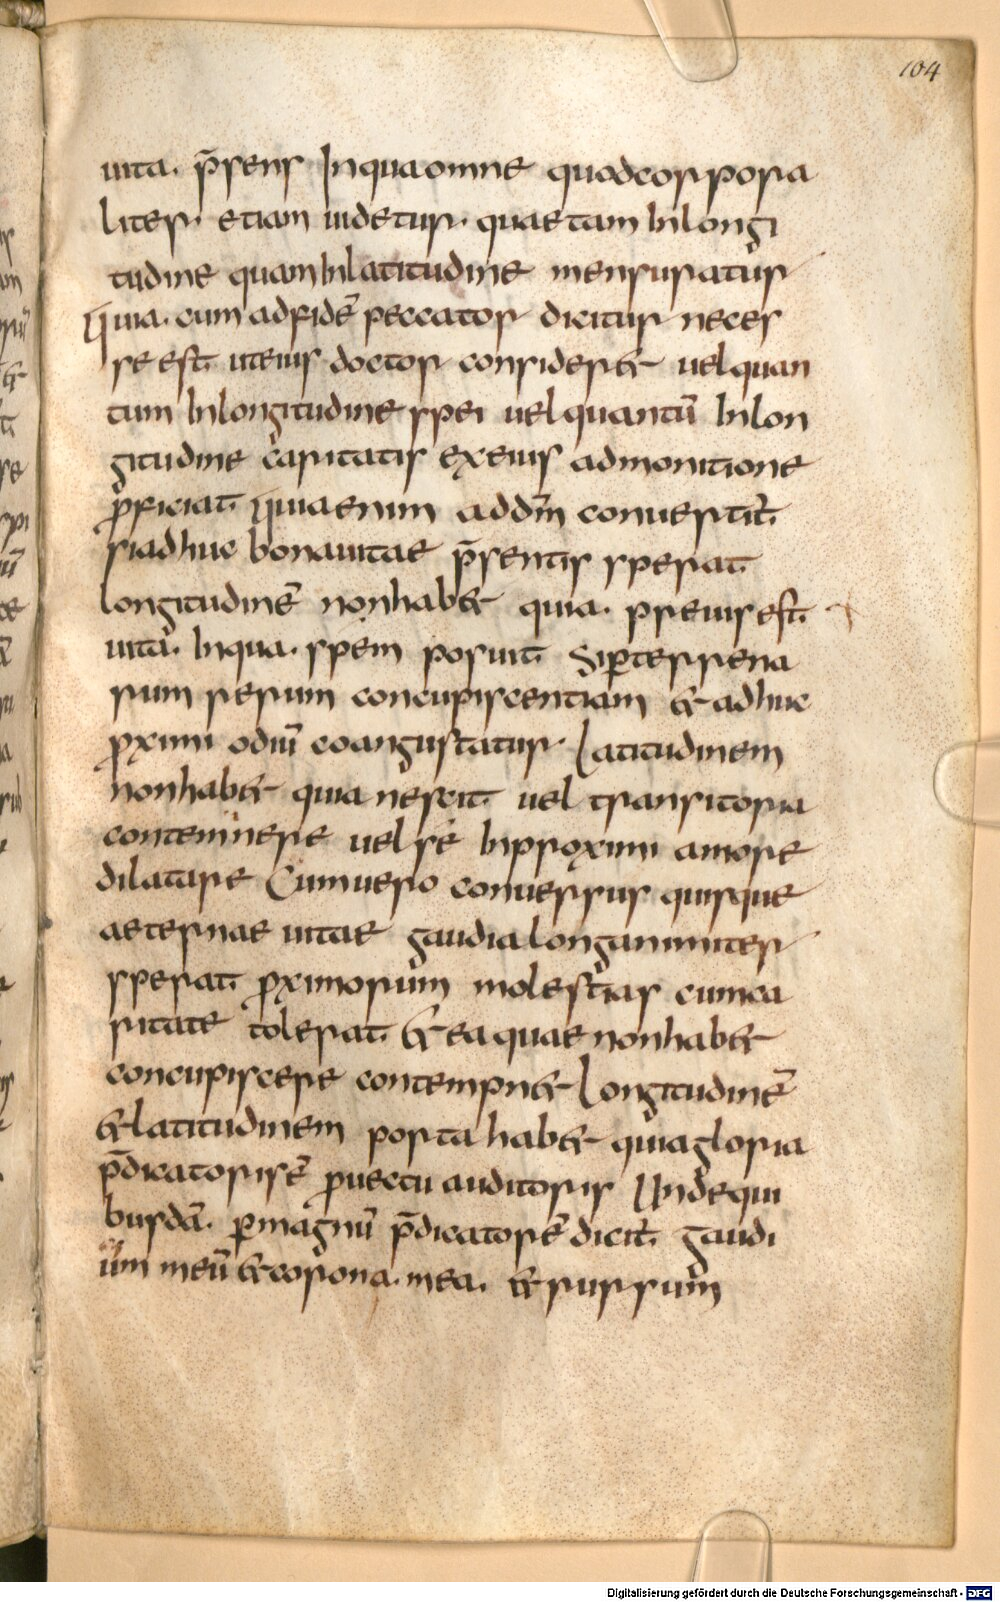 104
uita. p̄sens Inquaomne quodcorpora
liter. etiam uidetur. quaetam Inlongi
tudine quamInlatitudine mensuratur
Quia. cum adfidē peccator dicitur neces
se est uteius doctor consideret uelquan
tum Inlongitudine spei uelquantū Inlon
gitudine caritatis exeius admonitione
proficiat Quiaenim addm̄ conuertit
siadhuc bonauitae p̄sentis sperat
longitudinē nonhabet quia. preuisest
uita. Inqua. spem posuit Siperterrena
rum rerum concupiscentiam et adhuc
proximi odiū coangustatur. Latitudinem
nonhabet quia nescit uel transitoria
contemnere uel se Inproximi amore
dilatare Cumuero conuersus quisque
aeternae uitae gaudialonganimiter
sperat proximorum molestias cumca
ritate tolerat et ea quae nonhabet
concupiscere contempnet Longitudinē
et latitudinem porta habet quiagloria
p̄dicatorisē prouectu auditoris Undequi
busdā. permagnū p̄dicatorē dicit gaudi
um meū et corona. mea. et rursum
Digitalisierung gefördert durch die Deutsche Forschungsgemeinschaft - DFG